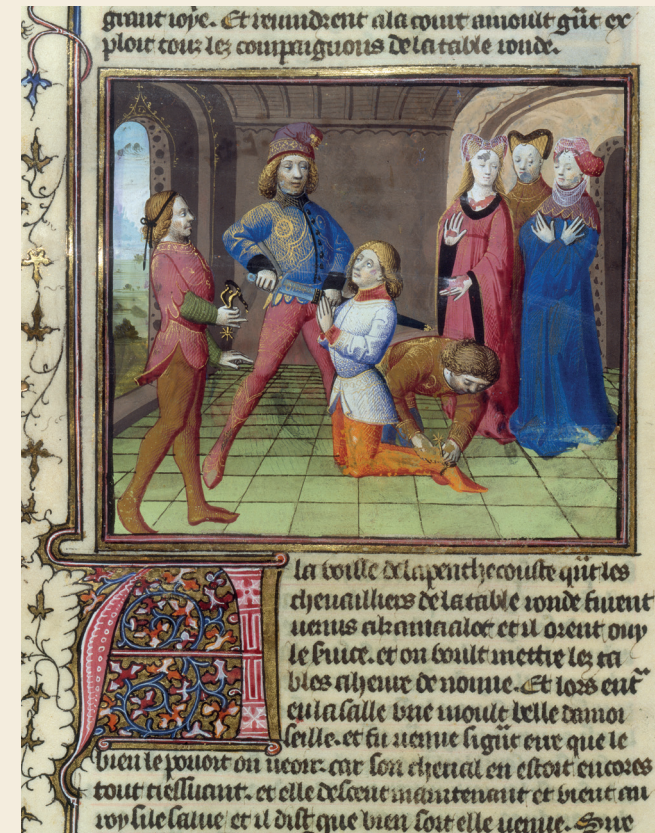 grant ioye. Et reuindrent a la court a moult grāt ex
ploit tour lez compaignons de la table ronde.
A la veille de la penthecouste qūt les
cheuailliers de la table ronde furent
uenus a kamaalot et il orent ouy
le seruice. et on voult mettre lez ta
bles a heure de nonne. Et lors entͣ
en la salle vne moult belle damoi
seille. et fu uenue si grāt eure que le
bien le pouoit on ueoir. car son cheual en estoit encores
tout tressuant. et elle descent maintenant et vient au
roy si le salue et il dist que bien soit elle uenue. Sire